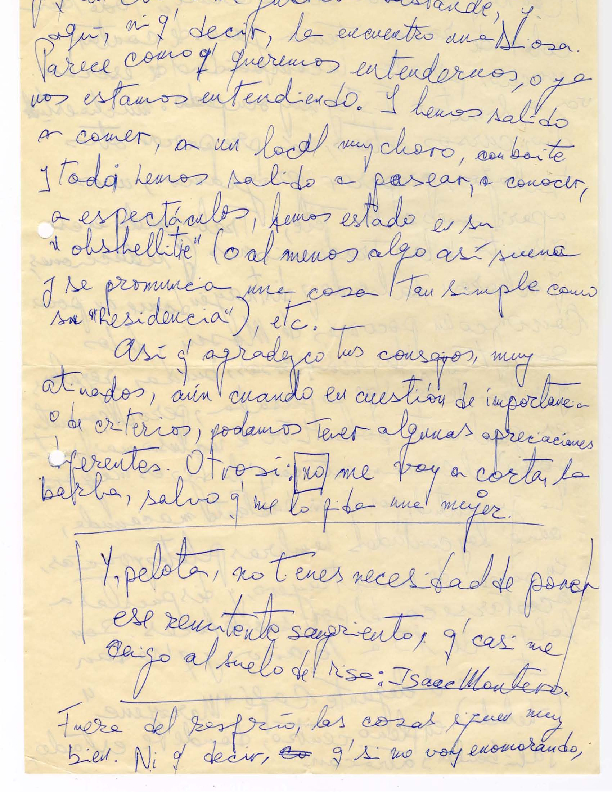 aquí, ni q' decir, la encuentro una Diosa.
Parece como q' queremos entendernos, o ya
nos estamos entendiendo. Y hemos salido
a comer, a un local muy choro, con boite
y todo, hemos salido a pasear, a conocer,
a espectáculos, hemos estado en su
"obshellitie" (o al menos algo así suena
y se pronuncia una cosa tan simple como
su "Residencia"), etc.
Así q' agradezco tus consejos, muy
atinados, aún cuando en cuestión de importancia
o de criterios, podamos tener algunas apreciaciones
diferentes. Otrosí: no me voy a cortar la
barba, salvo q' me lo pida una mujer.
Y, pelota, no tenes necesidad de poner
ese remitente sangriento, q' casi me
caigo al suelo de risa: Isaac Montero.
Fuera del resfrío, las cosas siguen muy
bien. Ni q' decir, q' si no voy enamorando,